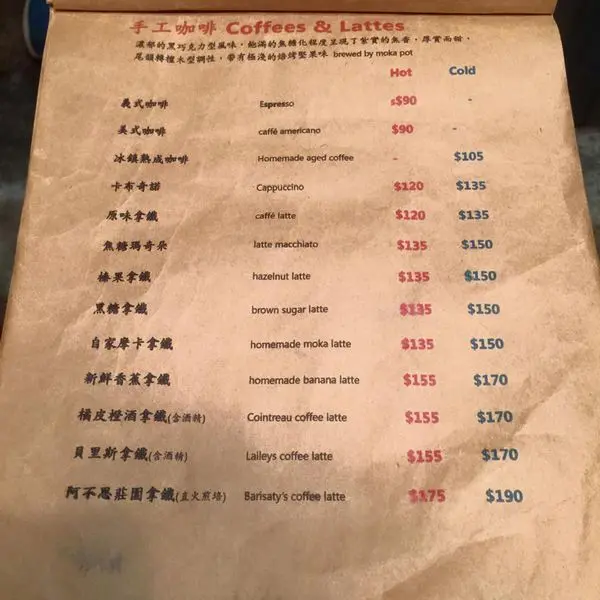 手工咖啡 Coffees & Lattes
濃郁的黑巧克力型風味，飽滿的焦糖化程度呈現了紮實的焦香，厚實而甜，
尾韻轉檀木型調性，帶有極淺的焙烤堅果味 brewed by moka pot
Hot Cold
義式咖啡 Espresso $$90
美式咖啡 caffé americano $90 -
冰鎮熟成咖啡 Homemade aged coffee - $105
卡布奇諾 Cappuccino $120 $135
原味拿鐵 caffé latte $120 $135
焦糖瑪奇朵 latte macchiato $135 $150
榛果拿鐵 hazelnut latte $135 $150
黑糖拿鐵 brown sugar latte $135 $150
自家摩卡拿鐵 homemade moka latte $135 $150
新鮮香蕉拿鐵 homemade banana latte $155 $170
橘皮橙酒拿鐵(含酒精) Cointreau coffee latte $155 $170
貝里斯拿鐵(含酒精) Laileys coffee latte $155 $170
阿不思莊園拿鐵(直火煎培) Barisaty's coffee latte $175 $190